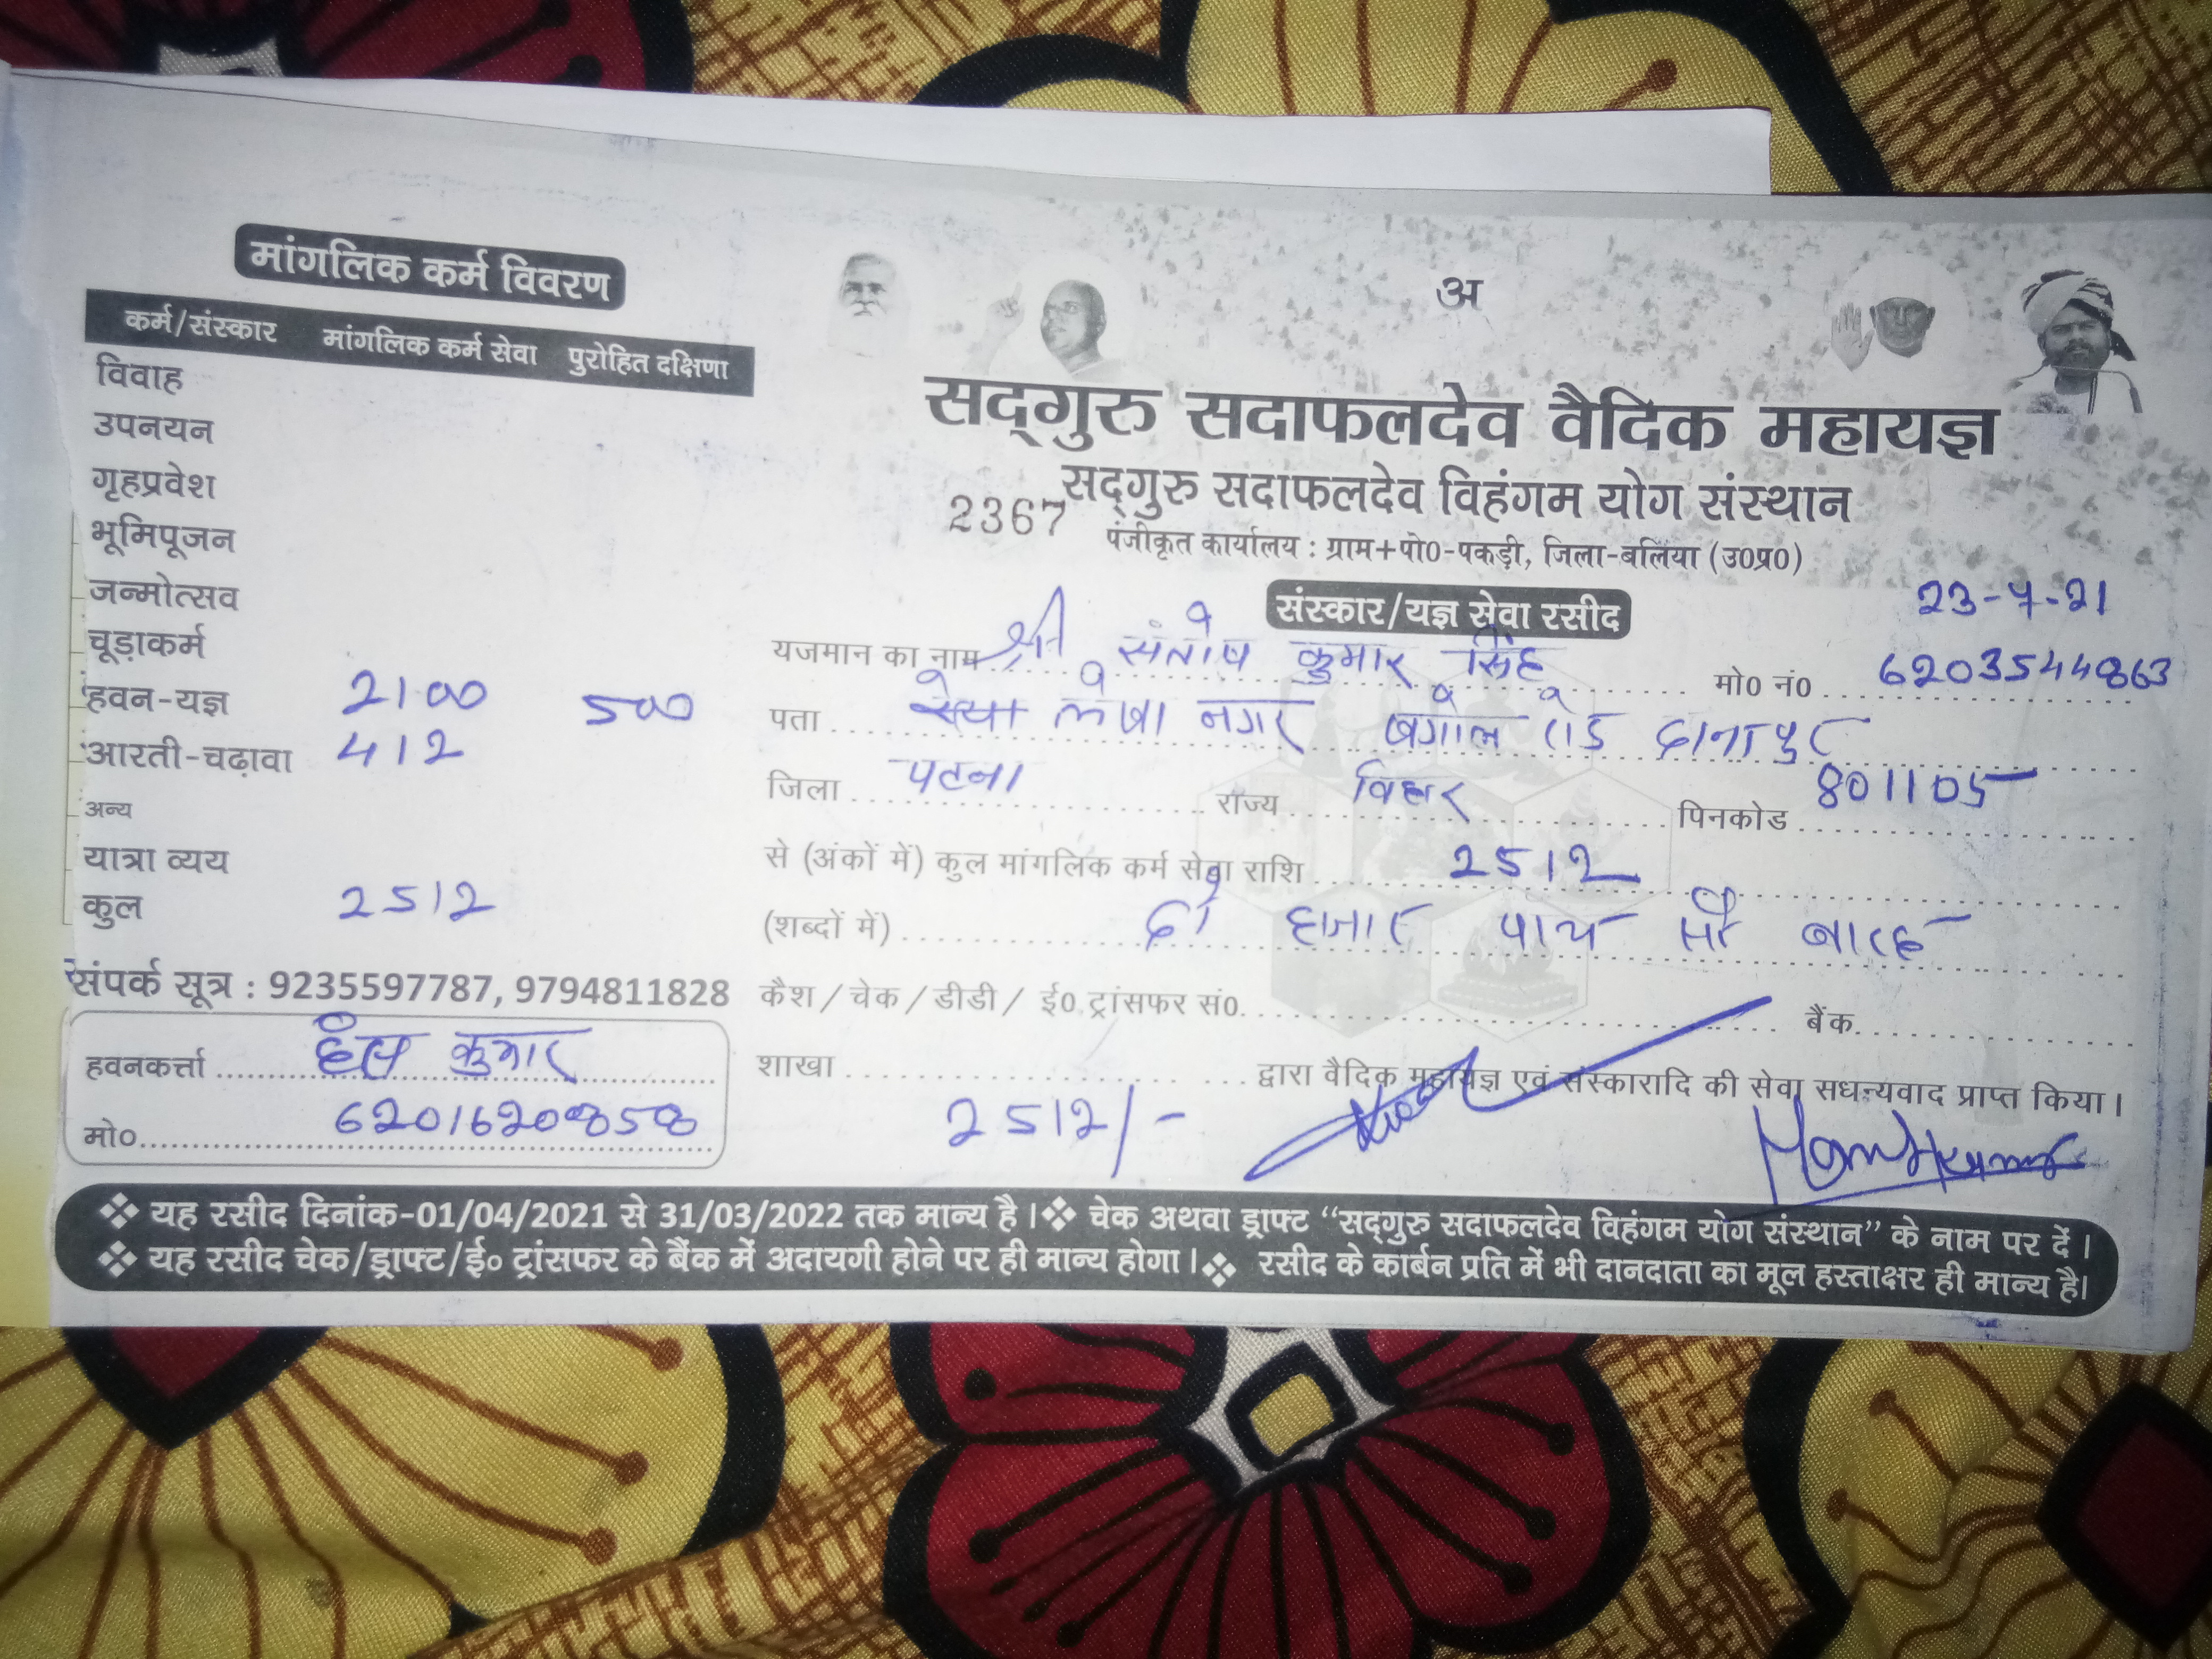 मांगलिक कर्म विवरण
कर्म/संस्कार मांगलिक कर्म सेवा पुरोहित दक्षिणा
विवाह
उपनयन
गृहप्रवेश
भूमिपूजन
जन्मोत्सव
चूड़ाकर्म
हवन-यज्ञ 2100 500
आरती-चढ़ावा 412
अन्य
यात्रा व्यय
कुल 2512
संपर्क सूत्र : 9235597787, 9794811828
हवनकर्त्ता कुमार
मो०
अ
सद्गुरु सदाफलदेव वैदिक महायज्ञ
सद्गुरु सदाफलदेव विहंगम योग संस्थान
2367 पंजीकृत कार्यालय : ग्राम+पो0-पकड़ी, जिला-बलिया (उ0प्र0)
संस्कार/यज्ञ सेवा रसीद
यजमान का नाम श्री संतोष कुमार सिंह मो0 नं0 6203544863
पता लेखा नगर खगोल रोड दानापुर
जिला पटना राज्य बिहार पिनकोड 801105
से (अंकों में) कुल मांगलिक कर्म सेवा राशि 2512
(शब्दों में) दो हजार पाच सौ बारह
कैश / चेक / डीडी / ई0 ट्रांसफर सं0. बैंक
शाखा द्वारा वैदिक महायज्ञ एवं संस्कारादि की सेवा सधन्यवाद प्राप्त किया।
2512/-
❖ यह रसीद दिनांक-01/04/2021 से 31/03/2022 तक मान्य है। ❖ चेक अथवा ड्राफ्ट “सद्गुरु सदाफलदेव विहंगम योग संस्थान” के नाम पर दें।
❖ यह रसीद चेक/ड्राफ्ट/ई० ट्रांसफर के बैंक में अदायगी होने पर ही मान्य होगा। ❖ रसीद के कार्बन प्रति में भी दानदाता का मूल हस्ताक्षर ही मान्य है।